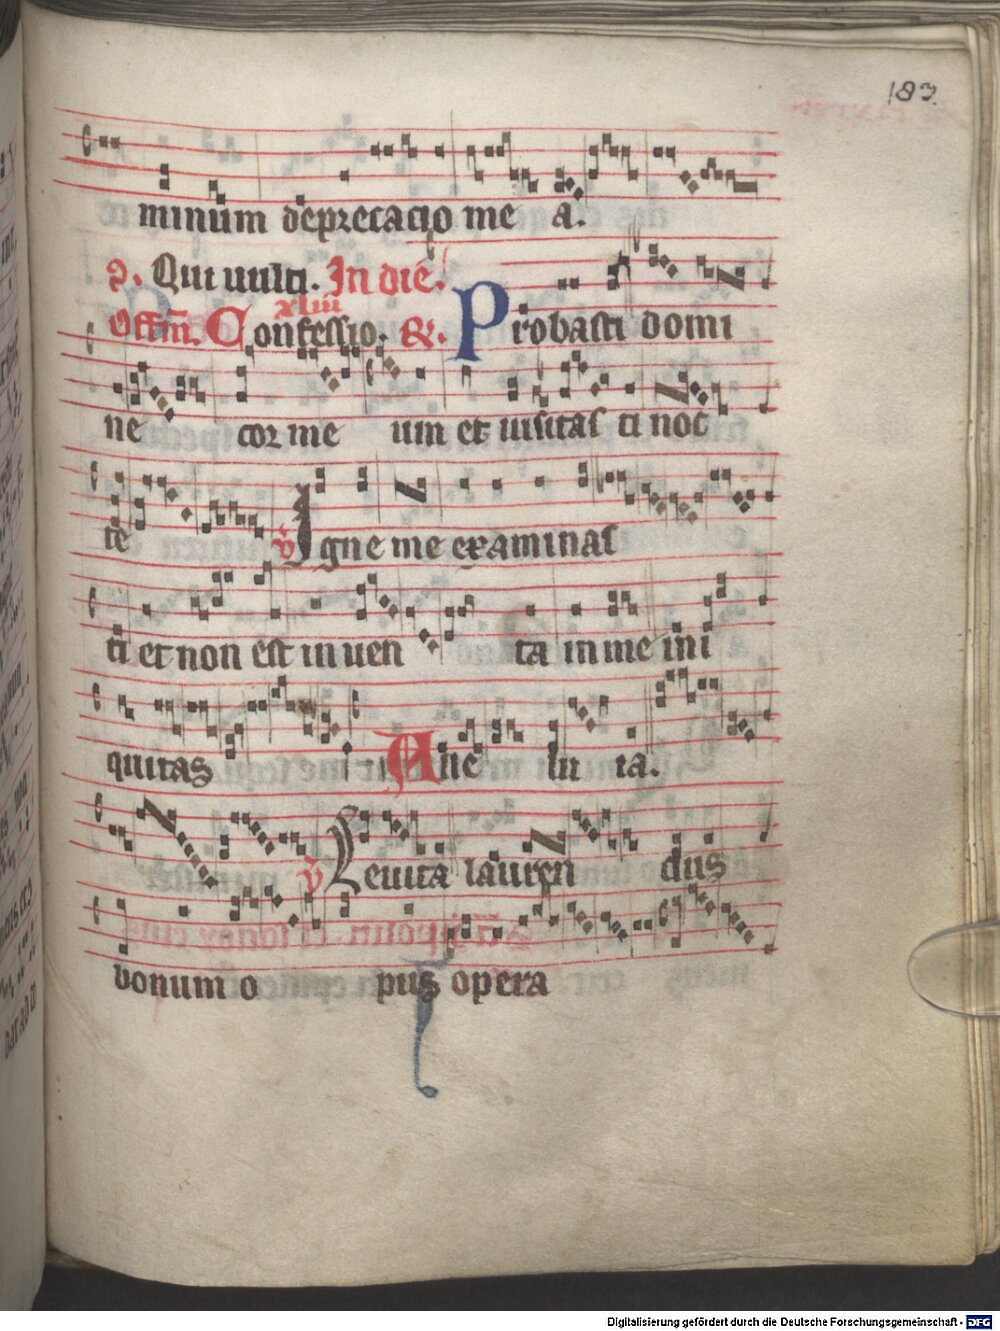 183
minum deprecacio me a.
Qui uult. In die.
xliii
Offm. Confessio. &. Probasti domi
ne cor me um et uisitas ti noc
te v Igne me examinas
ti et non est in uen ta in me ini
quitas Alle lu ia.
v Leuita lauren dus
bonum o pus opera
Digitalisierung gefördert durch die Deutsche Forschungsgemeinschaft - DFG